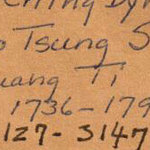 Ching Dyn
o Tsung S
uang Ti
1736-179
127-3147